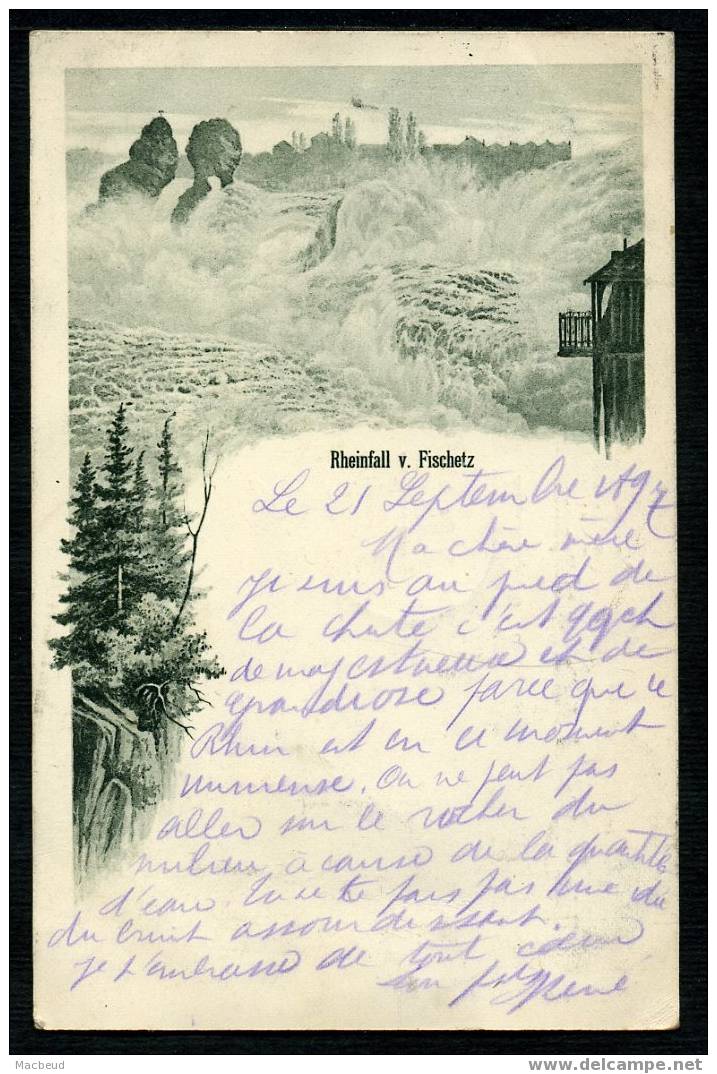 Rheinfall v. Fischetz
Le 21 Septembre 1897
Ma chère mère
Je suis au pied de
la chute c'est qqch
de majestueux et de
grandiose parce que le
Rhin est en ce moment
immense. On ne peut pas
aller sur le rocher du
milieu à cause de la quantité
d'eau. Tu ne te fais pas une
du bruit assourdissant.
Je t'embrasse de tout cœur
ton fils René
Macbeud
www.delcampe.net